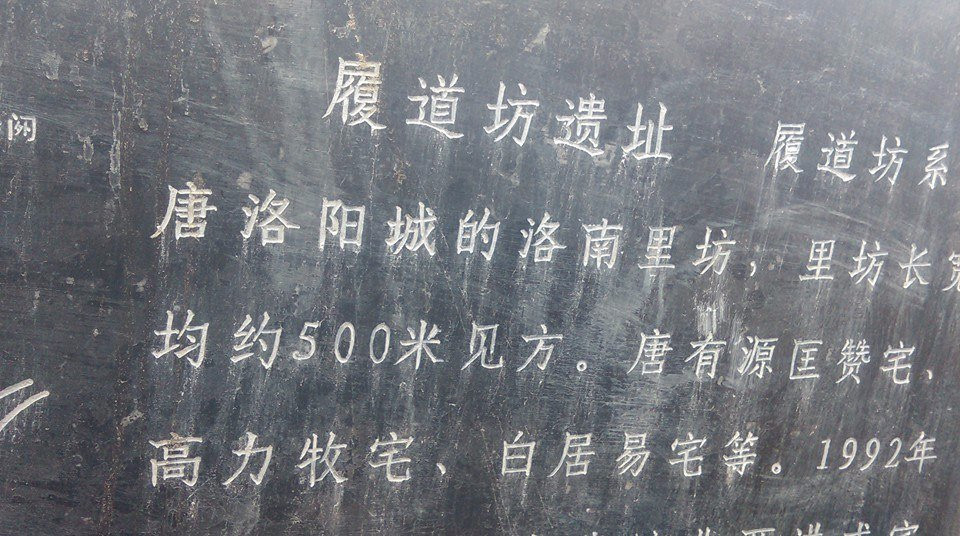 履道坊遗址 履道坊系
唐洛阳城的洛南里坊，里坊长宽
均约500米见方。唐有源匡赞宅、
高力牧宅、白居易宅等。1992年